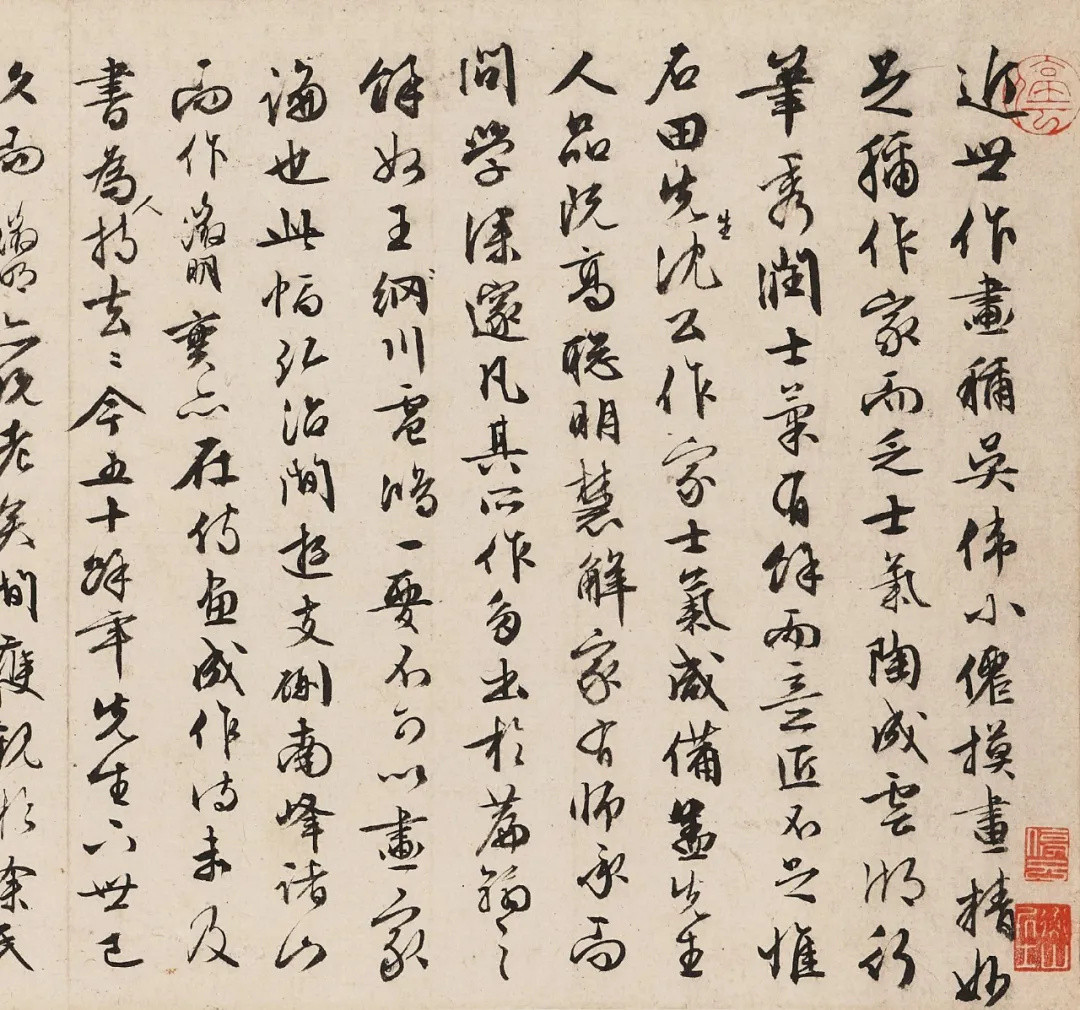 近世作畫稱吳偉小僊摸畫精妙
足稱作家而乏士氣陶成雲湖行
筆秀潤士氣有餘而意匠不足惟
石田先生沈公作家士氣咸備蓋先生
人品既高聰明慧解家有師承而
問學深邃凡其所作多出於篇翰之
餘如王網川雪鴻一要不可以畫家
論也此幅弘治間遊支硎南峰諸山
而作徵明實亦在侍畫成作詩未及
書為人持去〻今五十餘年先生下世已
久而徵明亦既老矣間獲觀於余氏